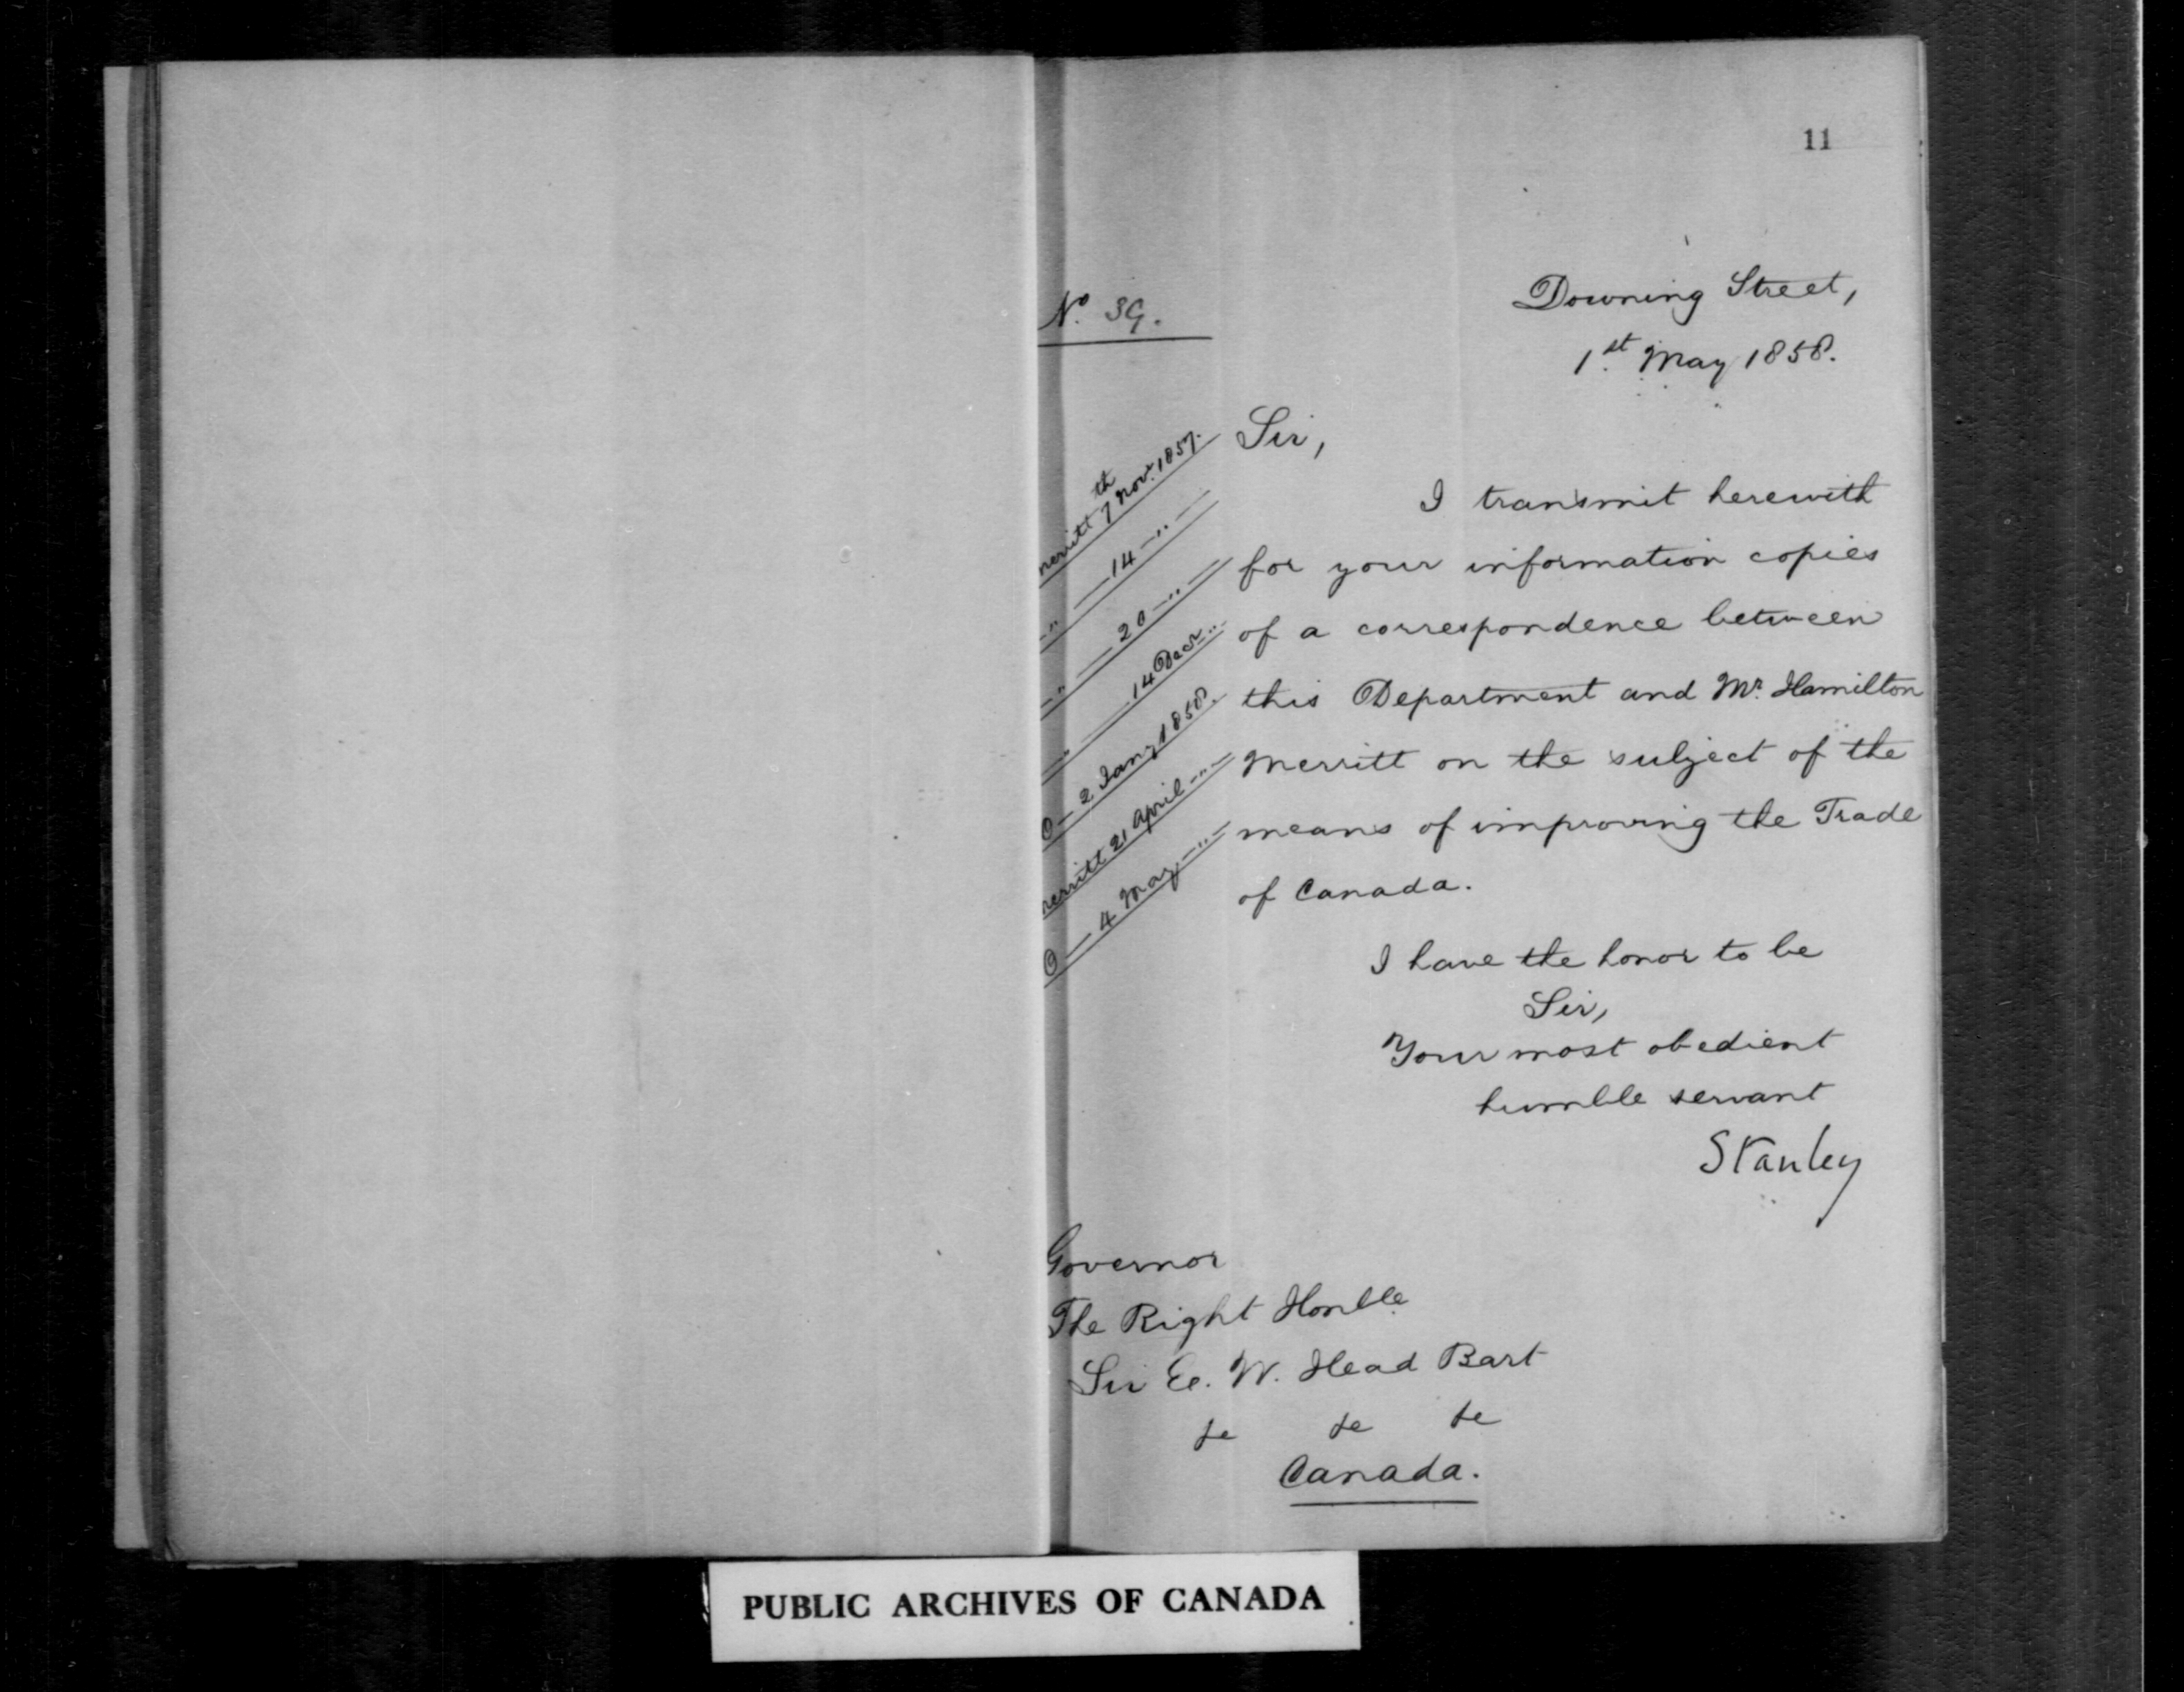 11
No. 39.
Downing Street,
1st May 1858.
Sir,
merritt 7th Novr. 1857.
" — 14 — " —
" — 20 — " —
" — 14 Decr "
O — 2 Jany 1858.
merritt 21 April — " —
O — 4 May — " —
I transmit herewith
for your information copies
of a correspondence between
this Department and Mr. Hamilton
Merritt on the subject of the
means of improving the Trade
of Canada.
I have the honor to be
Sir,
Your most obedient
humble servant
Stanley
Governor
The Right Honble
Sir E. W. Head Bart
&c &c &c
Canada.
PUBLIC ARCHIVES OF CANADA